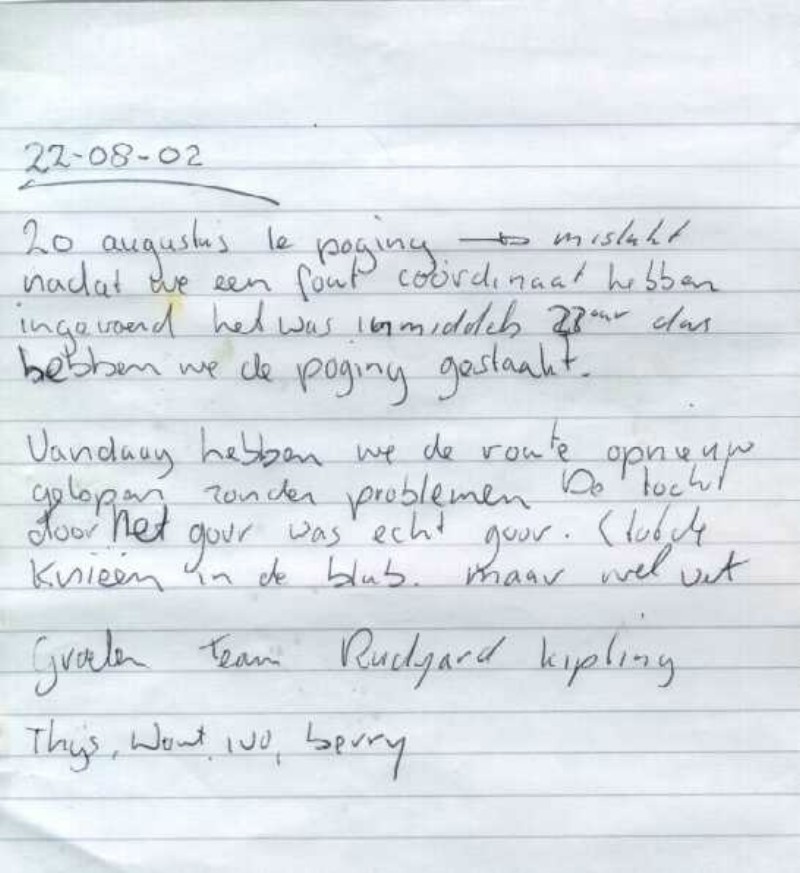 22-08-02
20 augustus 1e poging → mislukt
nadat we een fout coördinaat hebben
ingevoerd het was inmiddels uur dus
hebben we de poging gestaakt.
Vandaag hebben we de route opnieuw
gelopen zonder problemen De tocht
door het goor was echt goor. (tot de
Knieën in de blub. maar wel vet
Groeten team Rudyard kipling
Thijs, Wout, ivo, berry